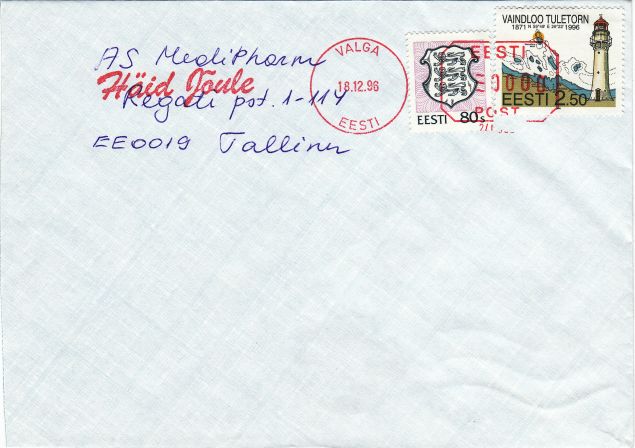 AS MediPharm
Häid Jõule
Regati pst. 1-114
EE0019 Tallinn
VALGA
18.12.96
EESTI
EESTI 80s
EESTI
0000
POST
VAINDLOO TULETORN
1871 1996
EESTI 2.50